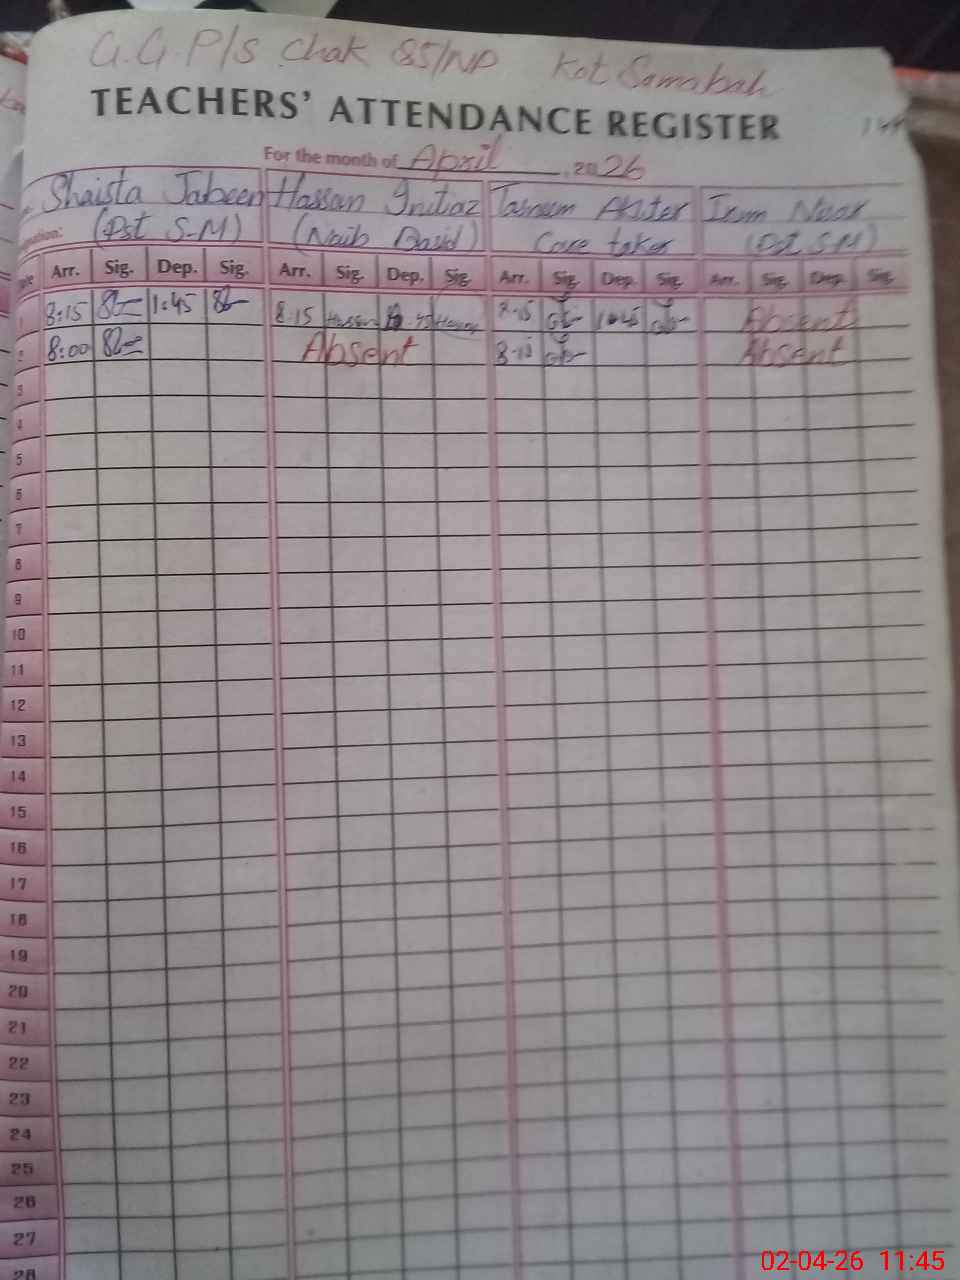 G.G P/S Chak 85/NP Kot Samabah
TEACHERS' ATTENDANCE REGISTER
For the month of April, 2026
Shaista Jabeen Hassan Imtiaz Tasneem Akhter Irum Noor
(Pst S-M) (Naib Qasid) Care taker (Pst S.M)
Arr. Sig. Dep. Sig. Arr. Sig. Dep. Sig. Arr. Sig. Dep. Sig. Arr. Sig. Dep. Sig.
1 8:15 1:45 8:15 Hassan Hassan 8-15 Absent
2 8:00 Absent 8-15 Absent
3
4
5
6
7
8
9
10
11
12
13
14
15
16
17
18
19
20
21
22
23
24
25
26
27
28
02-04-26 11:45